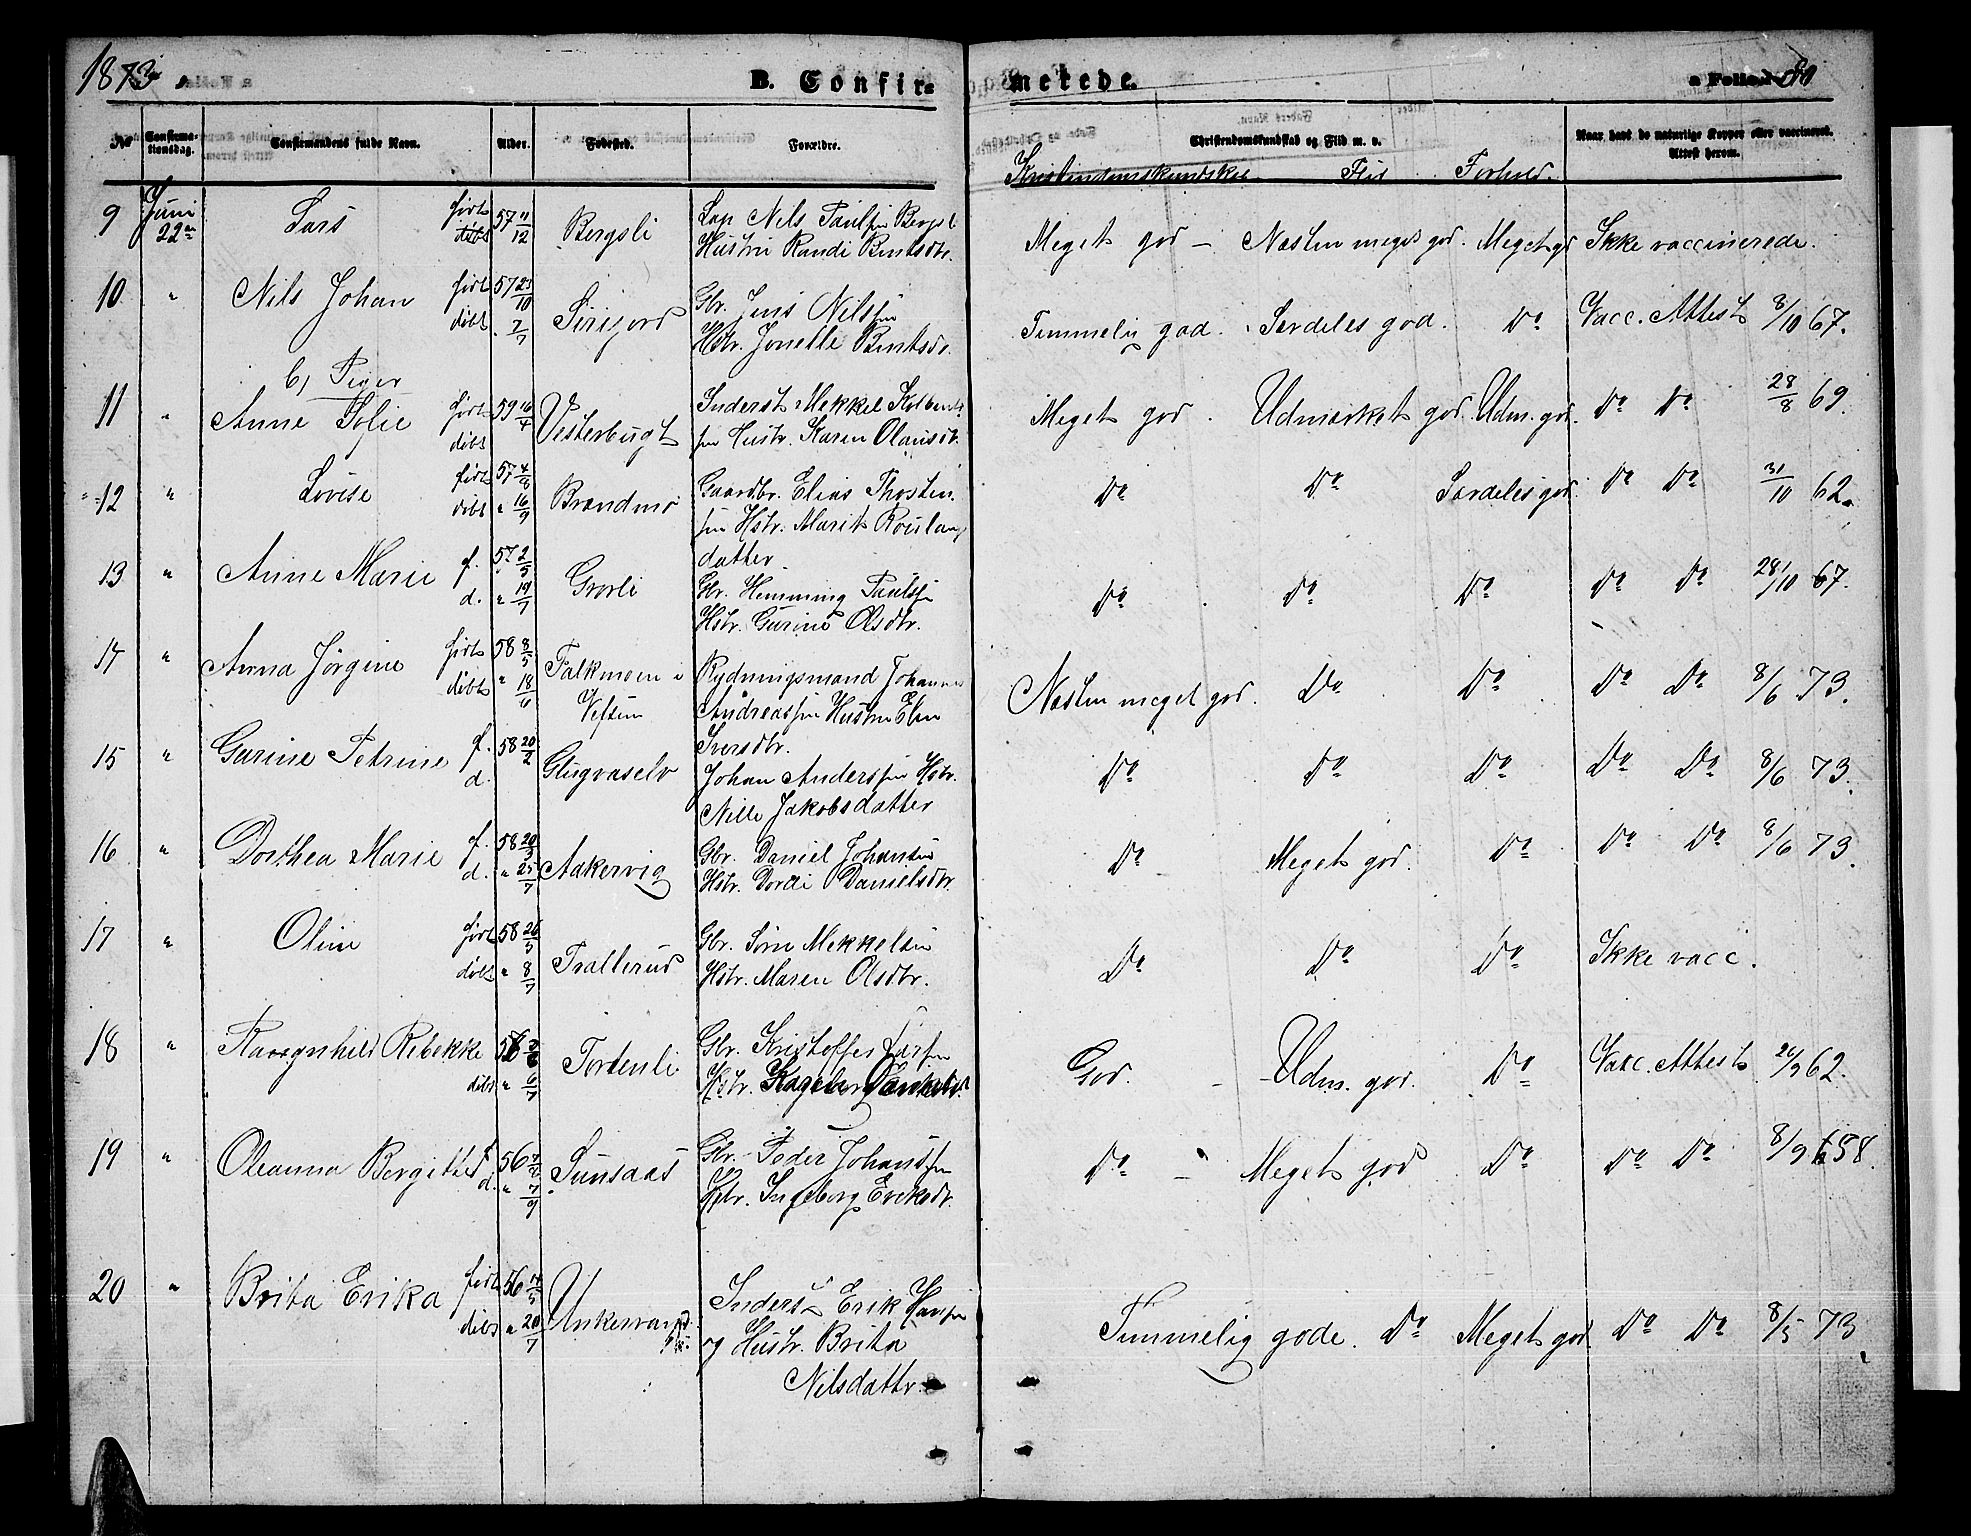 1873.
B. Confir=
merede.
a Folio 80
No
Confirma-
tionsdag.
Confirmandens fulde Navn.
Alder.
Fødested.
Forældre.
Christendomskundskab og Flid m. v.
Naar havt de naturlige Kopper eller vaccineret.
Attest herom.
Kristendomskundskab Flid Forhold.
9 Juni 22de Lars født døbt 57 11/12 Bergsli
Lap Nils Paulsen Bergsli
Hustru Randi Bentsdtr.
Meget god – Næsten meget god. Meget gd Ikke vaccinerede.
10 " Nils Johan født 57 23/10 døbt " 7/7 Sörifjord
Gbr. Jens Nilssen
Hstr. Jonelle Bentsdr.
Temmelig god. Særdeles god. Do Vacc. Attest 8/10 67.
b) Piger
11 " Anne Sofie født 59 16/4 døbt Vesterbugt
Inderst Mekkel Kolbents-
sen Hustr. Karen Olausdtr.
Meget god. Udmærket god. Udm. god. Do Do 28/8 69.
12 " Lovise født 57 4/8 døbt " 16/9 Brandmo
Gaardbr. Elias Thosten-
sen Hstr. Marit
datter
Do Do Særdeles god. Do Do 31/10 62.
13 " Anne Marie f. 57 2/5 d. " 19/7 Grorli
Gbr. Hemming Paulssen
Hstr. Gurine Olsdtr.
Do Do Do Do Do 28/10 67.
14 " Anna Jörgine født 58 8/5 døbt " 18/6 Falkmoen i
Vefsen
Rydningsmand Johannes
Andreassen Hustru Elen
Iversdtr.
Næsten meget god. Do Do Do Do 8/6 73.
15 " Gurine Petrine f. 58 20/2 d. Glugvaselv
Johan Anderssen Hstr.
Nille Jakobsdatter
Do Do Do Do Do 8/6 73.
16 " Dorthea Marie f. 58 20/3 d. " 25/7 Aakervig
Gbr. Daniel Johansen
Hstr. Dordi Danielsdtr.
Do Meget god. Do Do Do 8/6 73.
17 " Oline født 58 26/5 døbt " 8/7 Trallerud
Gbr. Sörn Mekkelsen
Hstr. Maren Olsdtr.
Do Do Do Ikke vacc.
18 " Raagnhild Rebekke 58 døbt " 6/7 Tortenli
Gbr. Kristoffer Larsen
Hstr.
God. – Udm. god. Do Vacc. Attest 26/9 62.
19 " Oleanna Bergitte f. 56 d. " 7/9 Sunsaas
Gbr. Peder Johanssen
Hstr. Ingeborg Eriksdr.
Do – Meget god Do Do Do 8/9 58.
20 " Brita Erika født 56 14/5 døbt " 20/7 Unkervand
Inderst Erik Hansen
og Hustr. Brita
Nilsdattr.
Temmelig gode. Do Meget god. Do Do 8/5 73.